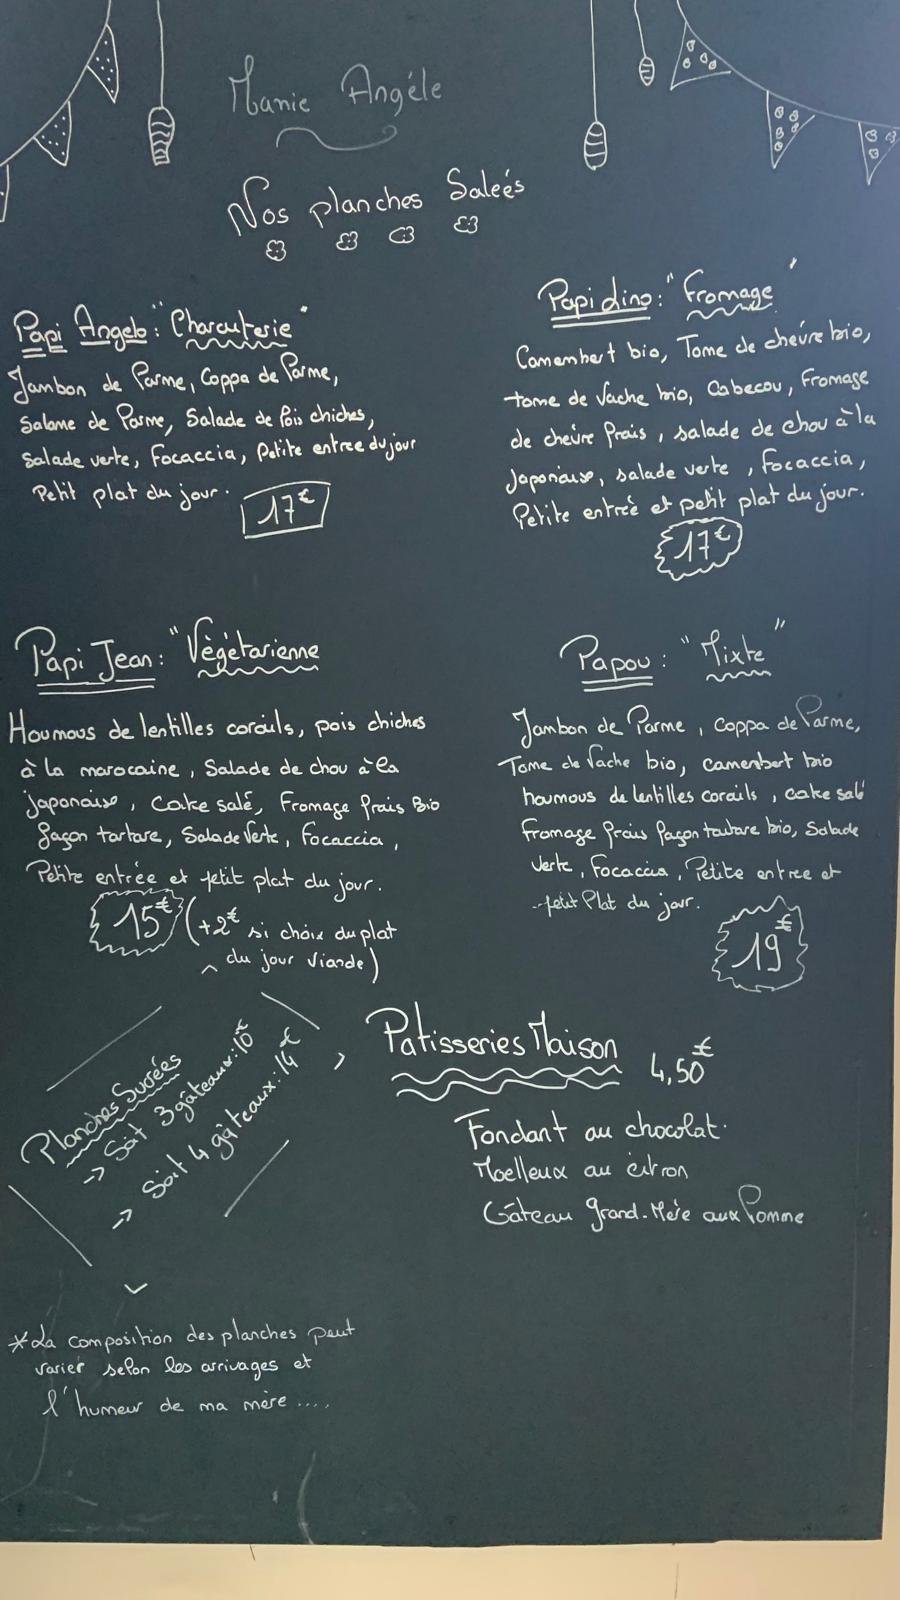 Manie Angéle
Nos planches Saleés
Papi Angelo: "Charcuterie"
Jambon de Parme, Coppa de Parme,
Salame de Parme, Salade de Pois chiches,
Salade verte, Focaccia, Petite entree du jour
Petit plat du jour.
17€
Papi dino: "Fromage"
Camembert bio, Tome de chévre bio,
tome de Vache bio, Cabecou, Fromage
de chévre frais, salade de chou à la
Japonaise, salade verte, Focaccia,
Petite entrée et petit plat du jour.
17€
Papi Jean: "Végétarienne
Houmous de lentilles corails, pois chiches
à la marocaine, Salade de chou à la
japonaise, Cake salé, Fromage frais Bio
façon tartare, Salade Verte, Focaccia,
Petite entrée et petit plat du jour.
15€ (+2€ si choix du plat
du jour Viande)
Papou: "Mixte"
Jambon de Parme, Coppa de Parme,
Tome de Vache bio, camembert bio
houmous de lentilles corails, cake salé
fromage frais façon tartare bio, Salade
Verte, Focaccia, Petite entree et
petit Plat du jour.
19€
Planches Sucrées
-> Soit 3 gâteaux: 10€
-> Soit 4 gâteaux: 14€
Patisseries Maison
4,50€
Fondant au chocolat.
Moelleux au citron
Gâteau grand-Mère aux Pomme
*La composition des planches peut
varier selon les arrivages et
l'humeur de ma mère....